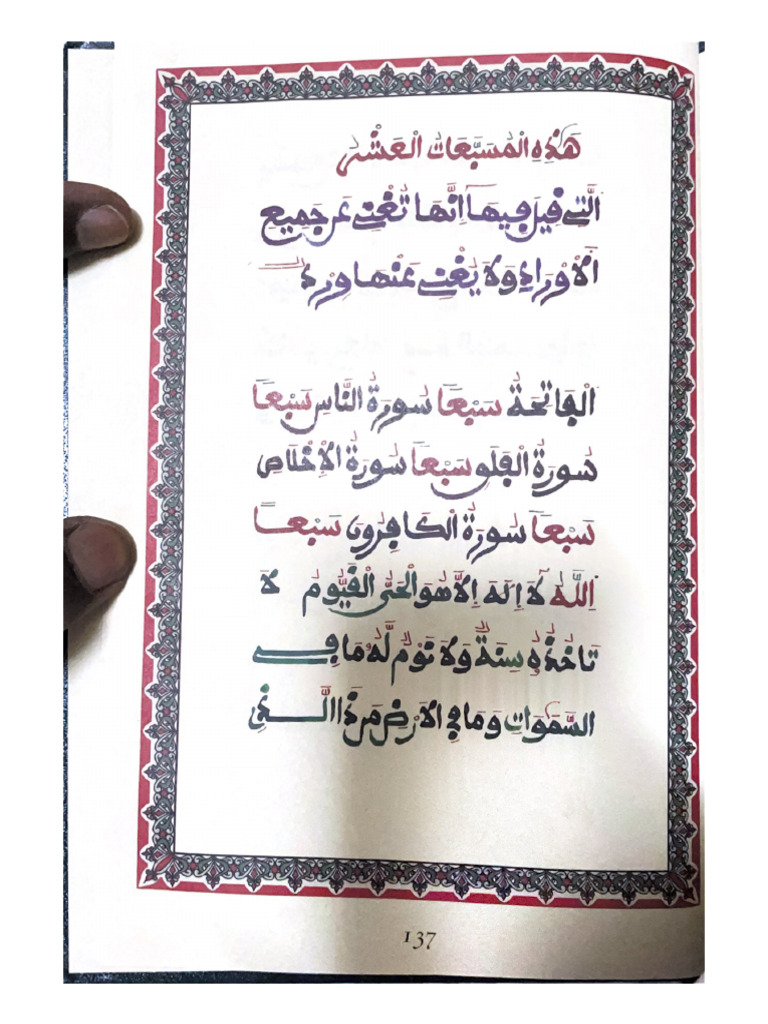 هَذِهِ الْمُسَبَّعَاتُ الْعَشْرُ
الَّتِي قِيلَ فِيهَا إِنَّهَا تُغْنِي عَنْ جَمِيعِ
الْأَوْرَادِ وَلَا يُغْنِي عَنْهَا وِرْدٌ
الْفَاتِحَةُ سَبْعًا سُورَةُ النَّاسِ سَبْعًا
سُورَةُ الْفَلَقِ سَبْعًا سُورَةُ الْإِخْلَاصِ
سَبْعًا سُورَةُ الْكَافِرُونَ سَبْعًا
اللَّهُ لَا إِلَهَ إِلَّا هُوَ الْحَيُّ الْقَيُّومُ لَا
تَاخُذُهُ سِنَةٌ وَلَا نَوْمٌ لَّهُ مَا فِي
السَّمَوَاتِ وَمَا فِي الْأَرْضِ مَن ذَا الَّذِي
137